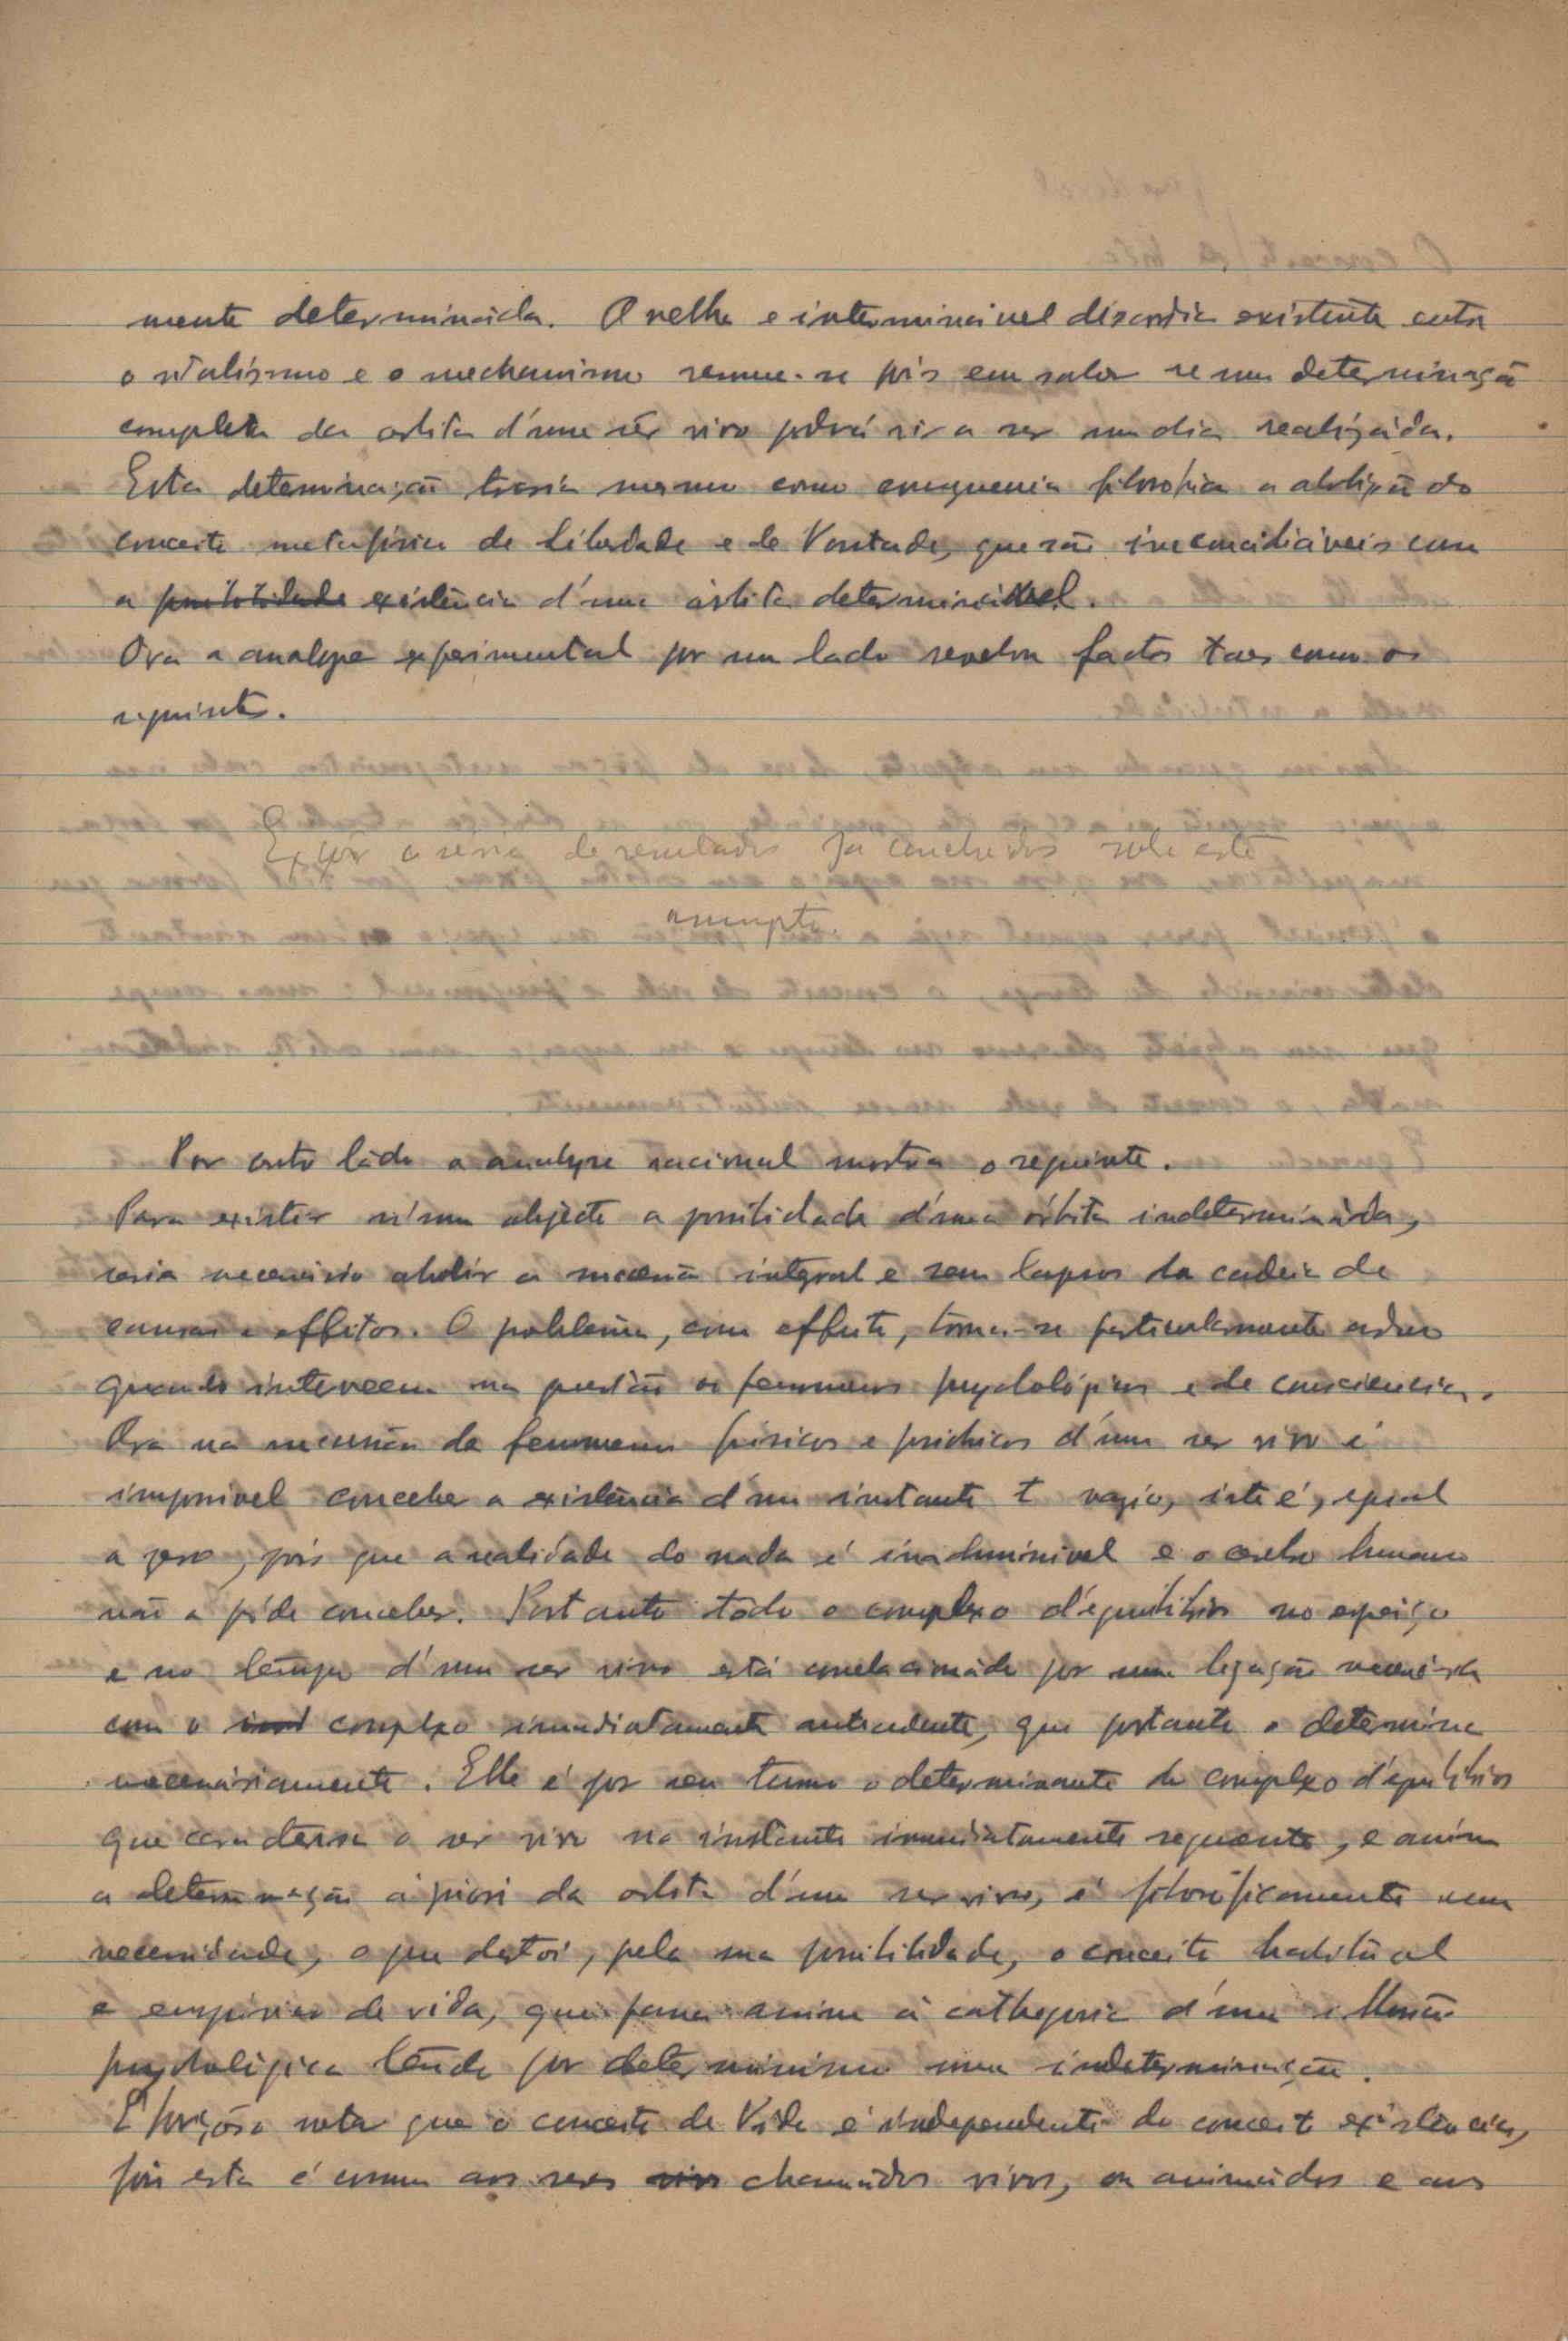 mente determináda. A velha e interminável discordia existente entre
o vitalismo e o mechanismo resume-se pois em saber se uma determinação
completa da orbita d'um sêr vivo poderá vir a ser um dia realizáda.
Esta determinação traria mesmo como consequencia filosofica a abolição do
conceito metafisico de Liberdade e de Vontade, que são inconciliáveis com
a possibilidade existência d'uma órbita determinável.
Ora a analyse experimental por um lado revelou factos taes como os
seguintes.
Expôr a série de resultados já concluidos sobre este
assumpto.
Por outro lado a analyse racional mostra o seguinte.
Para existir n'um objécto a possibilidade d'uma órbita indeterminada,
seria necessário abolir a sucessão integral e sem lapsos da cadeia de
causas e effeitos. O problema, com effeito, torna-se particularmente arduo
quando interveem na questão os fenomenos psychológicos e de consciencia.
Ora na sucessão de fenomenos fisicos e psichicos d'um ser vivo é
impossivel conceber a existência d'um instante t vazio, isto é, egual
a zero, pois que a realidade do nada é inadmissivel e o cerebro humano
não a póde conceber. Portanto tôdo o complexo d'equilibrios no espaço
e no tempo d'um ser vivo está correlacionádo por uma ligação necessária
com o complexo immediatamente antecedente, que portanto o determina
necessáriamente. Elle é por seu turno o determinante do complexo d'equilibrios
que caracterisa o ser vivo no instante immediatamente sequente, e assim
a determinação á priori da orbita d'um ser vivo, é filosóficamente uma
necessidade, o que destroi, pela sua possibilidade, o conceito habitual
e empirico de vida, que passa assim á cathegoria d'uma illusão
psychológica tendo por determinismo uma indeterminação.
É forçôso notar que o conceito de Vida é independente do conceito existencia,
pois esta é comum aos seres vivos chamádos vivos, ou animádos e aos